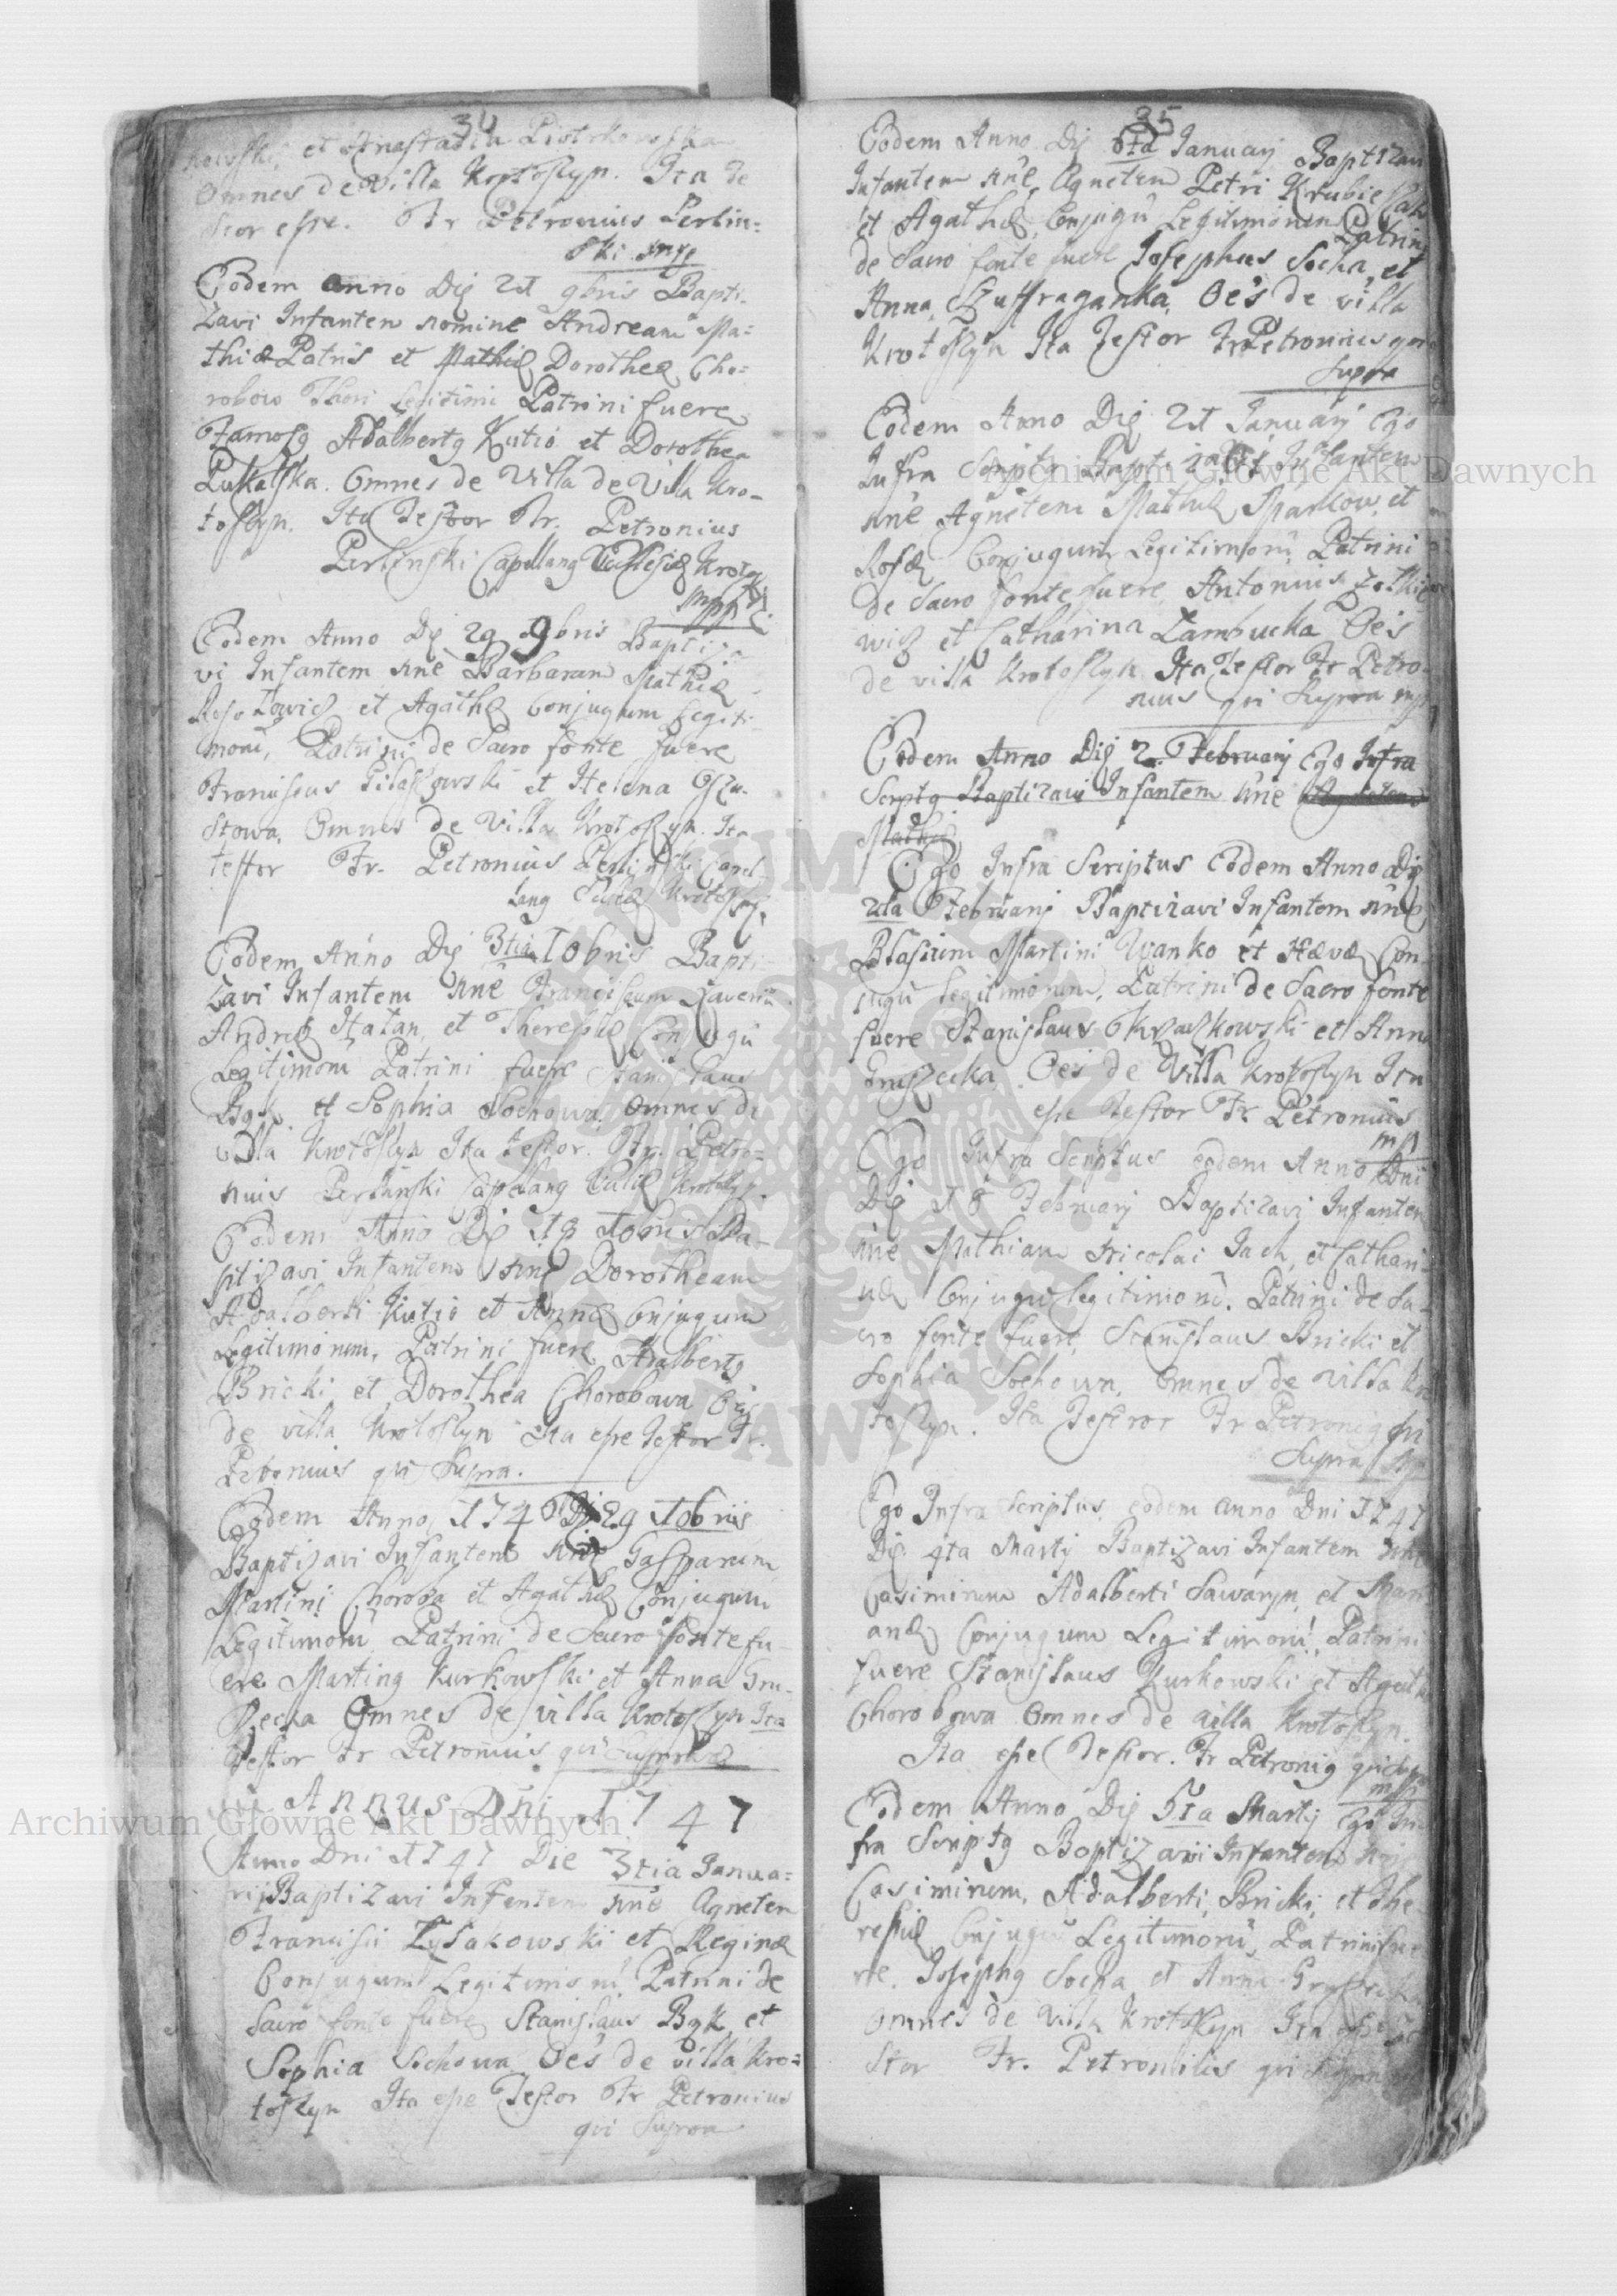 34
et Anastasia Piotrkowska
Omnes de Villa Krotoszyn. Ita Te
stor esse. Fr Petronius Perlin=
ski mpp
Eodem anno Die 21 9bris Bapti-
zavi Infantem nomine Andream Ma=
thiæ Patris et Mathiæ Dorotheæ Cho=
robow Thori Legitimi Patrini fuere
Famosg Adalbertg Kutio et Dorothea
Pukalska. Omnes de Villa de Villa Kro-
toszyn. Ita Testor Fr. Petronius
Perlinski Capellang Ecclesiæ Krotosz
mpp
Eodem Anno Die 29 9bris Baptiza
vi Infantem nne Barbaram Mathiæ
et Agathæ Conjugum Legiti
morū, Patrini de Sacro fonte fuere
Franciscus et Helena
stowa. Omnes de Villa Krotoszyn. Ita
testor Fr. Petronius Perlinski Capel-
lang Eccliæ Krotosz.
Eodem Anno Die 3tia 10bris Bapti
zavi Infantem nne Franciscum Xaveriū
Andreæ Hatan, et Theresiæ Conjugū
Legitimorū Patrini fuere Stanislaus
Bąk et Sophia Sochowa Omnes de
villa Krotoszyn Ita testor. Fr. Petro=
nius Perlinski Capellang Eccliæ Krotosz.
Eodem Anno Die 18 10bris Ba-
ptizavi Infantem nne Dorotheam
Adalberti Kutio et Annæ Conjugum
Legitimorum, Patrini fuere Adalbertg
Bricki, et Dorothea Chorobowa Oēs
de villa Krotoszyn Ita esse Testor Fr.
Petronius qui Supra.
Eodem Anno 174 Die 29 10bris
Baptizavi Infantem nne Gasparum
Martini Choroba et Agathæ Conjugum
Legitimorū, Patrini de Sacro fonte fu-
ere Marting Kurkowski et Anna Gru-
szecka Omnes de villa Krotoszyn Ita
Testor Fr Petronius qui Supra
Annus Dni 1747
Anno Dni 1747 Die 3tia Janua=
rij Baptizavi Infantem nne Agnetem
Francisci Zysakowski et Reginæ
Conjugum Legitimorū Patrini de
Sacro fonte fuere Stanislaus Bąk et
Sophia Sochowa Oēs de villa Kro=
toszyn Ita esse Testor Fr Petronius
qui Supra
35
Eodem Anno Die 6ta Januarij Baptizavi
Infantem nne Agnetem Petri
et Agathæ, Conjugū Legitimorum Patrini
de Sacro fonte fuere Josephus Socha et
Anna Szuffraganka, Oēs de villa
Krotoszyn Ita Testor Fr Petronius qui
Supra
Eodem Anno Die 21 Januarij Ego
Infra Scriptg Baptizavi Infantem
nne Agnetem Mathiæ Markow, et
Rosæ Conjugum Legitimorū Patrini
de Sacro fonte fuere Antonius
wicz et Catharina Zambucka Oēs
de villa Krotoszyn Ita Testor Fr Petro-
nius qui Supra mpp
Eodem Anno Die 2. Februarij Ego Infra
Scriptg Baptizavi Infantem nne
Mathiæ
Ego Infra Scriptus Eodem Anno Die
2da Februarij Baptizavi Infantem nne
Blasium Martini Wanko et Hævæ Con-
jugū legitimorum, Patrini de Sacro fonte
fuere Stanislaus et Anna
Gruszecka. Oēs de Villa Krotoszyn Ita
esse Testor Fr Petronius
mpp
Ego Infra Scriptus eodem Anno Dni
Die 18 Februarij Baptizavi Infantem
nne Mathiam Nicolai Jach, et Cathari-
næ Conjugū legitimorū. Patrini de Sa-
cro fonte fuere, Stanislaus Bricki et
Sophia Sochowa, Omnes de villa Kro
toszyn. Ita Testor Fr Petronig qui
Supra mpp
Ego Infra Scriptus, eodem anno Dni 1747
Die 4ta Martij Baptizavi Infantem nne
Casimirum Adalberti Sawaryn et Mari
annæ Conjugum Legitimorū Patrini
fuere Stanislaus Kurkowski et Agatha
Chorobowa Omnes de villa Krotoszyn.
Ita esse Testor. Fr Petronig qui Supra
mpp
Eodem Anno Die 5ta Martij Ego In
fra Scriptg Baptizavi Infantem nne
Casimirum, Adalberti, Bricki, et The-
resiæ Conjugū Legitimorū, Patrini fue
re. Josephg Socha et Anna
Omnes de Villa Krotoszyn Ita esse Te
stor Fr. Petronius qui Supra
Archiwum Główne Akt Dawnych
Archiwum Główne Akt Dawnych
ARCHIWUM GŁÓWNE AKT DAWNYCH